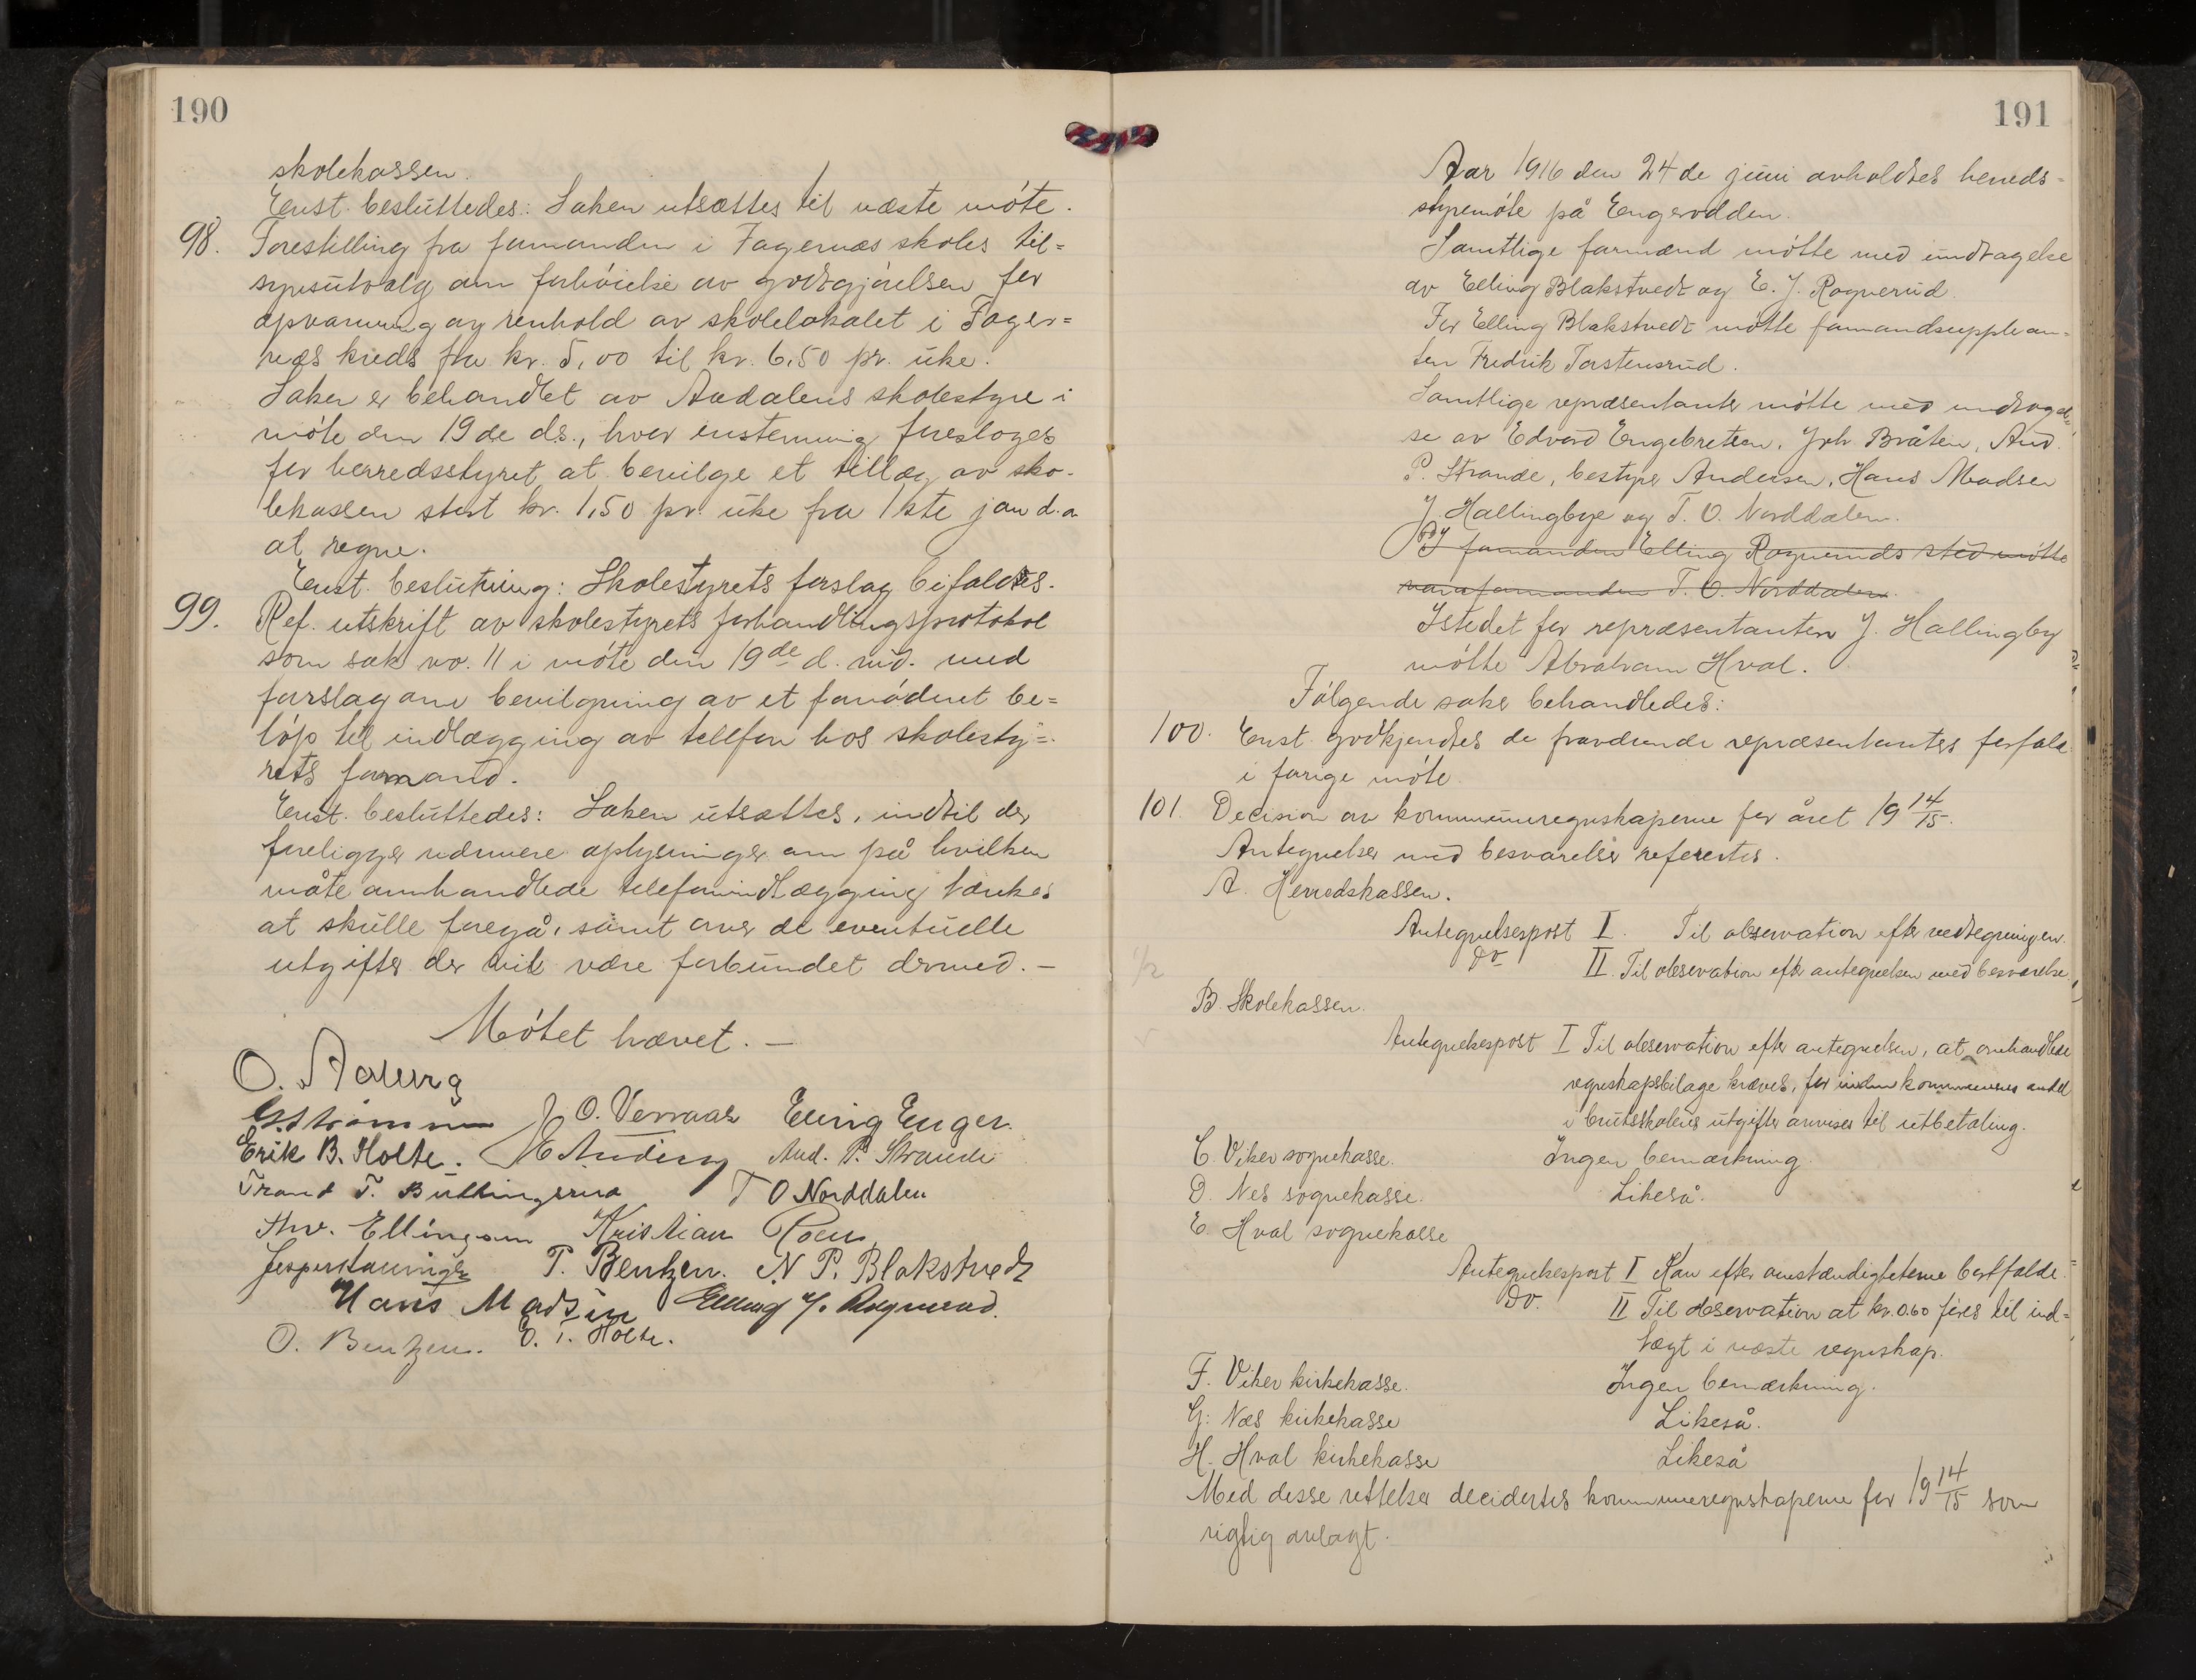 190
skolekassen.
Enst. besluttedes: Saken utsættes til næste møte.
98. Forestilling fra formanden i Fagernæs skoles til=
synsutvalg om forhøielse av godtgjørelsen for
opvarming og renhold av skolelokalet i Fager=
næs kreds fra kr. 5,00 til kr. 6,50 pr. uke.
Saken er behandlet av Aadalens skolestyre i
møte den 19de ds., hvor enstemmig foresloges
for herredsstyret at bevilge et tillæg av sko-
lekassen stort kr. 1,50 pr. uke fra 1ste jan d.a
at regne.
Enst. beslutning: Skolestyrets forslag bifaldtes.
99. Ref. utskrift av skolestyrets forhandlingsprotokol
som sak no. 11 i møte den 19de d. md. med
forslag om bevilgning av et fornødent be=
løp til indlægging av tellfon hos skolesty=
rets formand.
Enst. besluttedes: Saken utsættes, indtil der
foreligger nærmere oplysninger om på hvilken
måte omhandlede telefonindlægging tænkes
at skulle foregå, samt over de eventuelle
utgifter der vil være forbundet dermed. –
Møtet hævet. –
O. Aaberg
G. Strømmen J. O. Verraas Elling Enger.
Erik B. Holte. M Andersen And. P. Strande
Trond T. Buttingsrud T O Norddalen
Thv. Ellingsen Kristian Roen
Jesper Hauringer P. Bentzen. N. P. Blakstvedt
Hans Madsen Elling J. Rognerud.
O. Bentzen. O. T. Holte.
191
Aar 1916 den 24de juni avholdtes herreds=
styremøte på Engerodden.
Samtlige formænd møtte med undtagelse
av Elling Blakstvedt og E. J. Rognerud.
For Elling Blakstvedt møtte formandsupplean=
ten Fredrik Torstensrud.
Samtlige repræsentanter møtte med undtagel=
se av Edvard Engebretsen, Joh. Bråten, And.
P. Strande, bestyrer Andersen, Hans Madsen
J. Hallingbye og T. O. Norddalen.
I formanden Elling Rogneruds sted møtte
varaformanden T. O. Norddalen.
Istedet for repræsentanten J. Hallingby
møtte Abraham Hval.
Følgende saker behandledes:
100. Enst. godkjendtes de fraværende repræsentanters forfald
i forige møte.
101. Decision av kommuneregnskaperne for året 19 14/15.
Antegnelser med besvarelser refereertes.
A. Herredskassen.
Antegnelsespost I. Til observation efter vedtegningen.
Do II. Til observation efter antegnelsen med besvarelse.
B. Skolekassen.
Antegnelsespost I Til observation efter antegnelsen, at omhandlede
regnskapsbilage kræves, før inden kommunens andel
i brutskolens utgifter anvises til utbetaling.
C. Viker sognekasse. Ingen bemærkning.
D. Nes sognekasse. Likeså.
E. Hval sognekasse
Antegnelsespost I Kan efter omstændigheterne bortfalde.
Do. II Til observation at kr. 0.60 føres til ind=
tægt i næste regnskap.
F. Viker kirkekasse. Ingen bemærkning.
G. Næs kirkekasse Likeså.
H. Hval kirkekasse Likeså
Med disse rettelser decidertes kommuneregnskaperne for 19 14/15 som
rigtig avlagt.